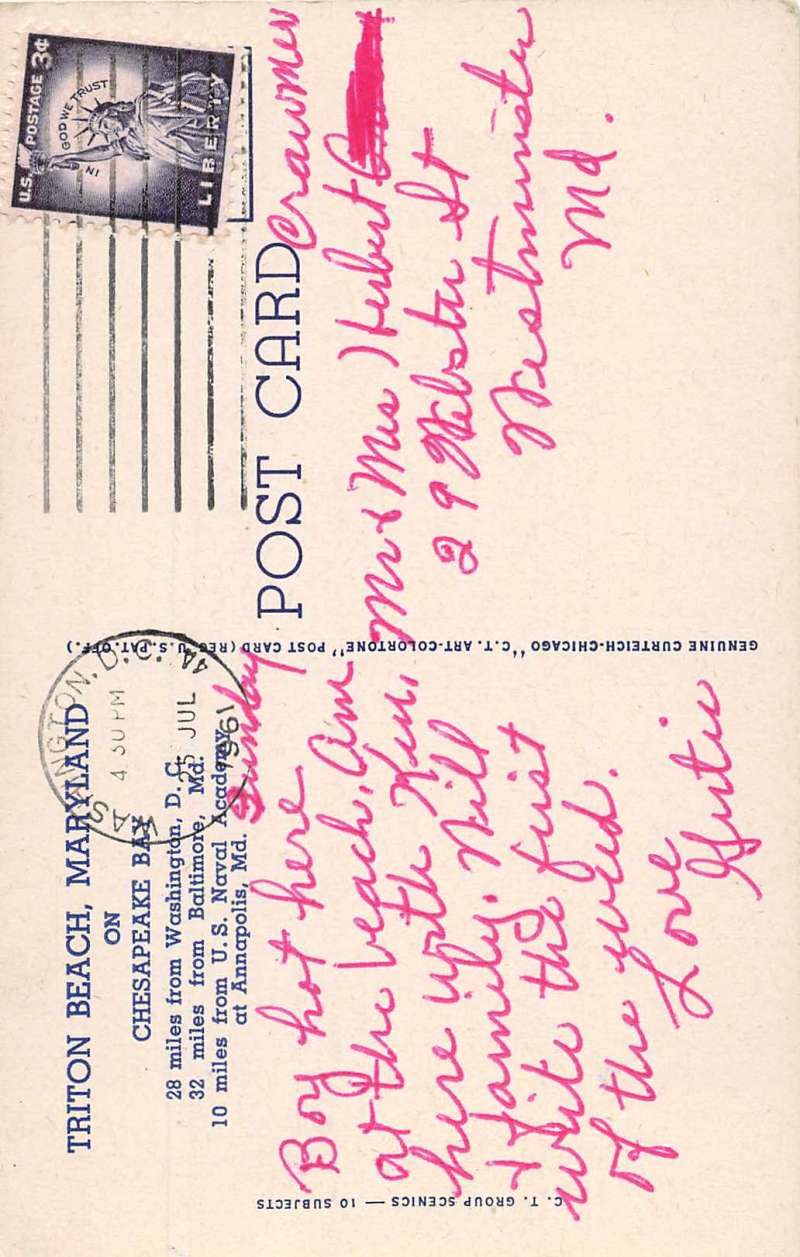 TRITON BEACH, MARYLAND
ON
CHESAPEAKE BAY
28 miles from Washington, D. C.
32 miles from Baltimore, Md.
10 miles from U. S. Naval Academy
at Annapolis, Md.
Sunday
Boy hot here
at the beach. Am
here with Ken,
& family. Will
write the first
of the week.
Love
Gertie
C. T. GROUP SCENICS — 10 SUBJECTS
GENUINE CURTEICH-CHICAGO "C.T. ART-COLORTONE" POST CARD (REG. U.S. PAT. OFF.)
WASHINGTON, D.C.
4 30 PM
25 JUL
1961
4A
U.S. POSTAGE 3¢
IN GOD WE TRUST
LIBERTY
POST CARD
Crawmer
Mr & Mrs Herbert
29 Webster St
Westminster
Md.